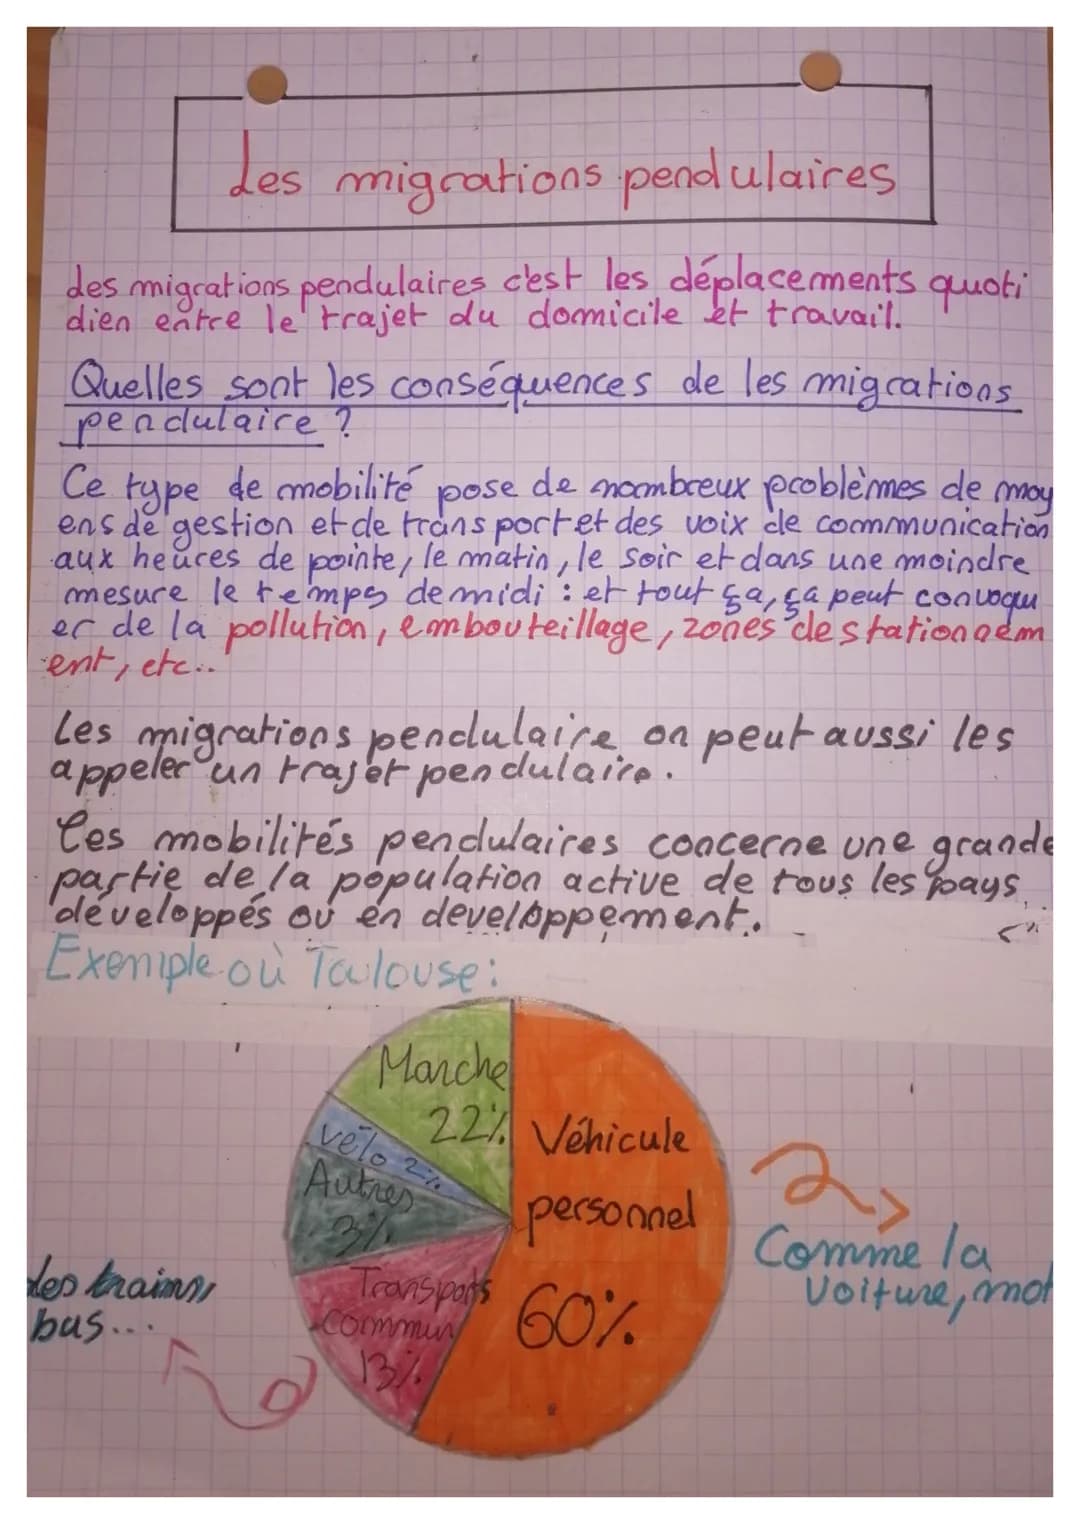 des migrations pendulaires
des migrations pendulaires c'est les déplacements quoti
dien entre le trajet du domicile et travail.
Quelles sont les conséquences de les migrations
pendulaire ?
Ce type de mobilité pose de nombreux problèmes de moy
ens de gestion et de transport et des voix de communication
aux heures de pointe, le matin, le soir et dans une moindre
mesure le temps de midi : et tout ça, ça peut convoqu
er de la pollution, embouteillage, zones de stationnem
ent, etc..
Les migrations pendulaire on peut aussi les
appeler un trajet pendulaire.
Ces mobilités pendulaires concerne une grande
partie de la population active de tous les pays
développés ou en developpement.
Exemple où Toulouse:
Marche
22%
vélo 2%
Autres
3%
Transports
commun
13%
Véhicule
personnel
60%
Comme la
voiture, mot
des trains,
bus...